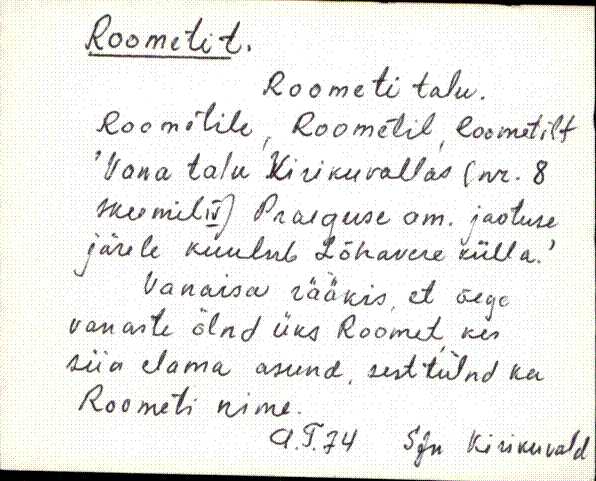 Roometit.
Roometi talu.
Roometile, Roometil, Roometilt
'Vana talu Kirikuvallas (nr. 8
skeemil IV) Praeguse am. jaotuse
järele kuulub Lõhavere külla.'
Vanaisa rääkis, et õege
vanaste õlnd üks Roomet, kes
siia elama asund, sest tulnd ka
Roometi nime.
A.T. 74 Sjn Kirikuvald